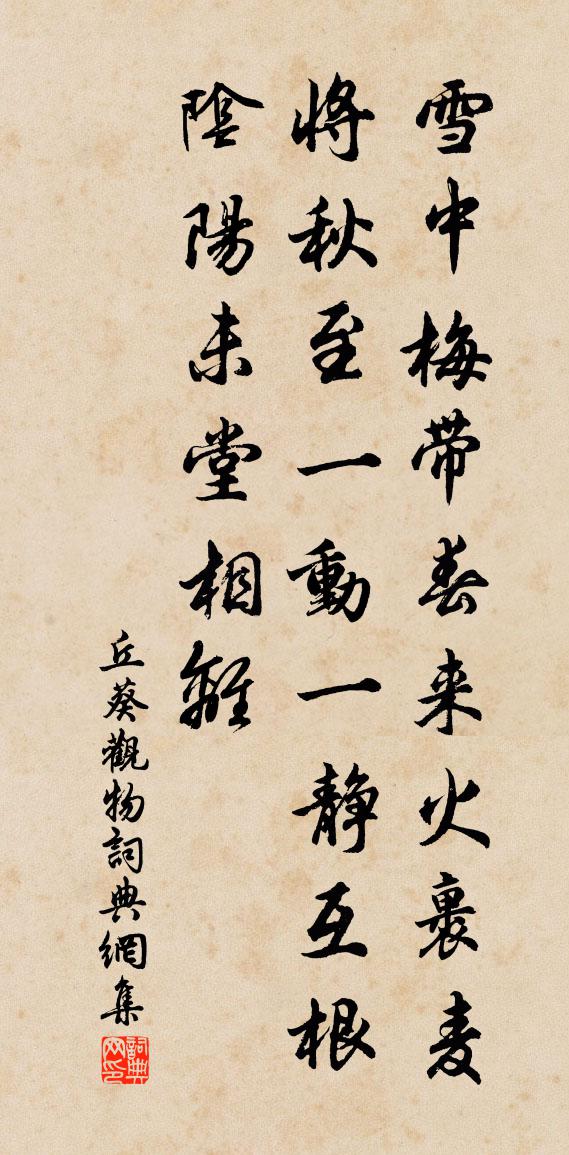 雪中梅带春来火裏麦
將秋至一動一静互根
陰陽未堂相離
丘葵觀物詞典網集
詞典网印